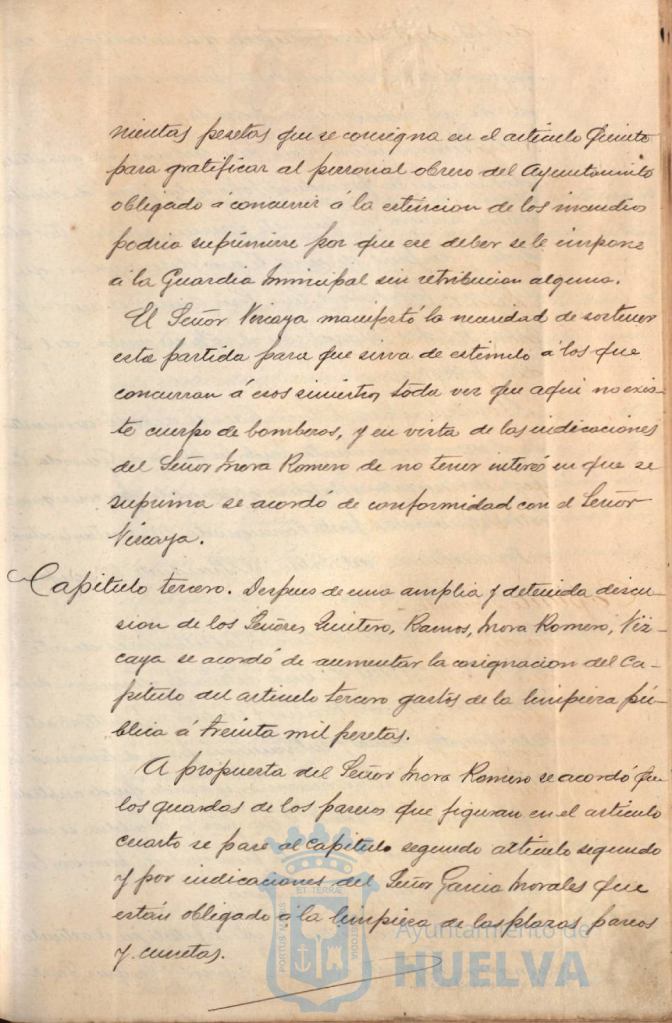 nientas pesetas que se consigna en el articulo Quinto
para gratificar al personal obrero del Ayuntamiento
obligado á concurrir á la estincion de los incendios
podria suprimirse por que ese deber se le impone
á la Guardia Municipal sin retribucion alguna.
El Señor Vizcaya manifestó la necesidad de sostener
esta partida para que sirva de estimulo á los que
concurran á esos siniestros, toda vez que aqui no exis-
te cuerpo de bomberos, y en vista de las indicaciones
del Señor Mora Romero de no tener interés en que se
suprima se acordó de conformidad con el Señor
Vizcaya.
Capitulo tercero. Despues de una amplia y detenida discu-
sion de los Señores Quintero, Ramos, Mora Romero, Viz-
caya se acordó de aumentar la cosignacion del Ca-
pitulo del articulo tercero gastos de la limpieza pú-
blica á treinta mil pesetas.
A propuesta del Señor Mora Romero se acordó que
los guardas de los paseos que figuran en el articulo
cuarto se pase al Capitulo segundo articulo segundo
y por indicaciones del Señor Garcia Morales que
están obligado á la limpieza de las plazas, paseos
y cunetas.
ET TERRÆ
PORTUS MARIS
CUSTODIA
Ayuntamiento de
HUELVA